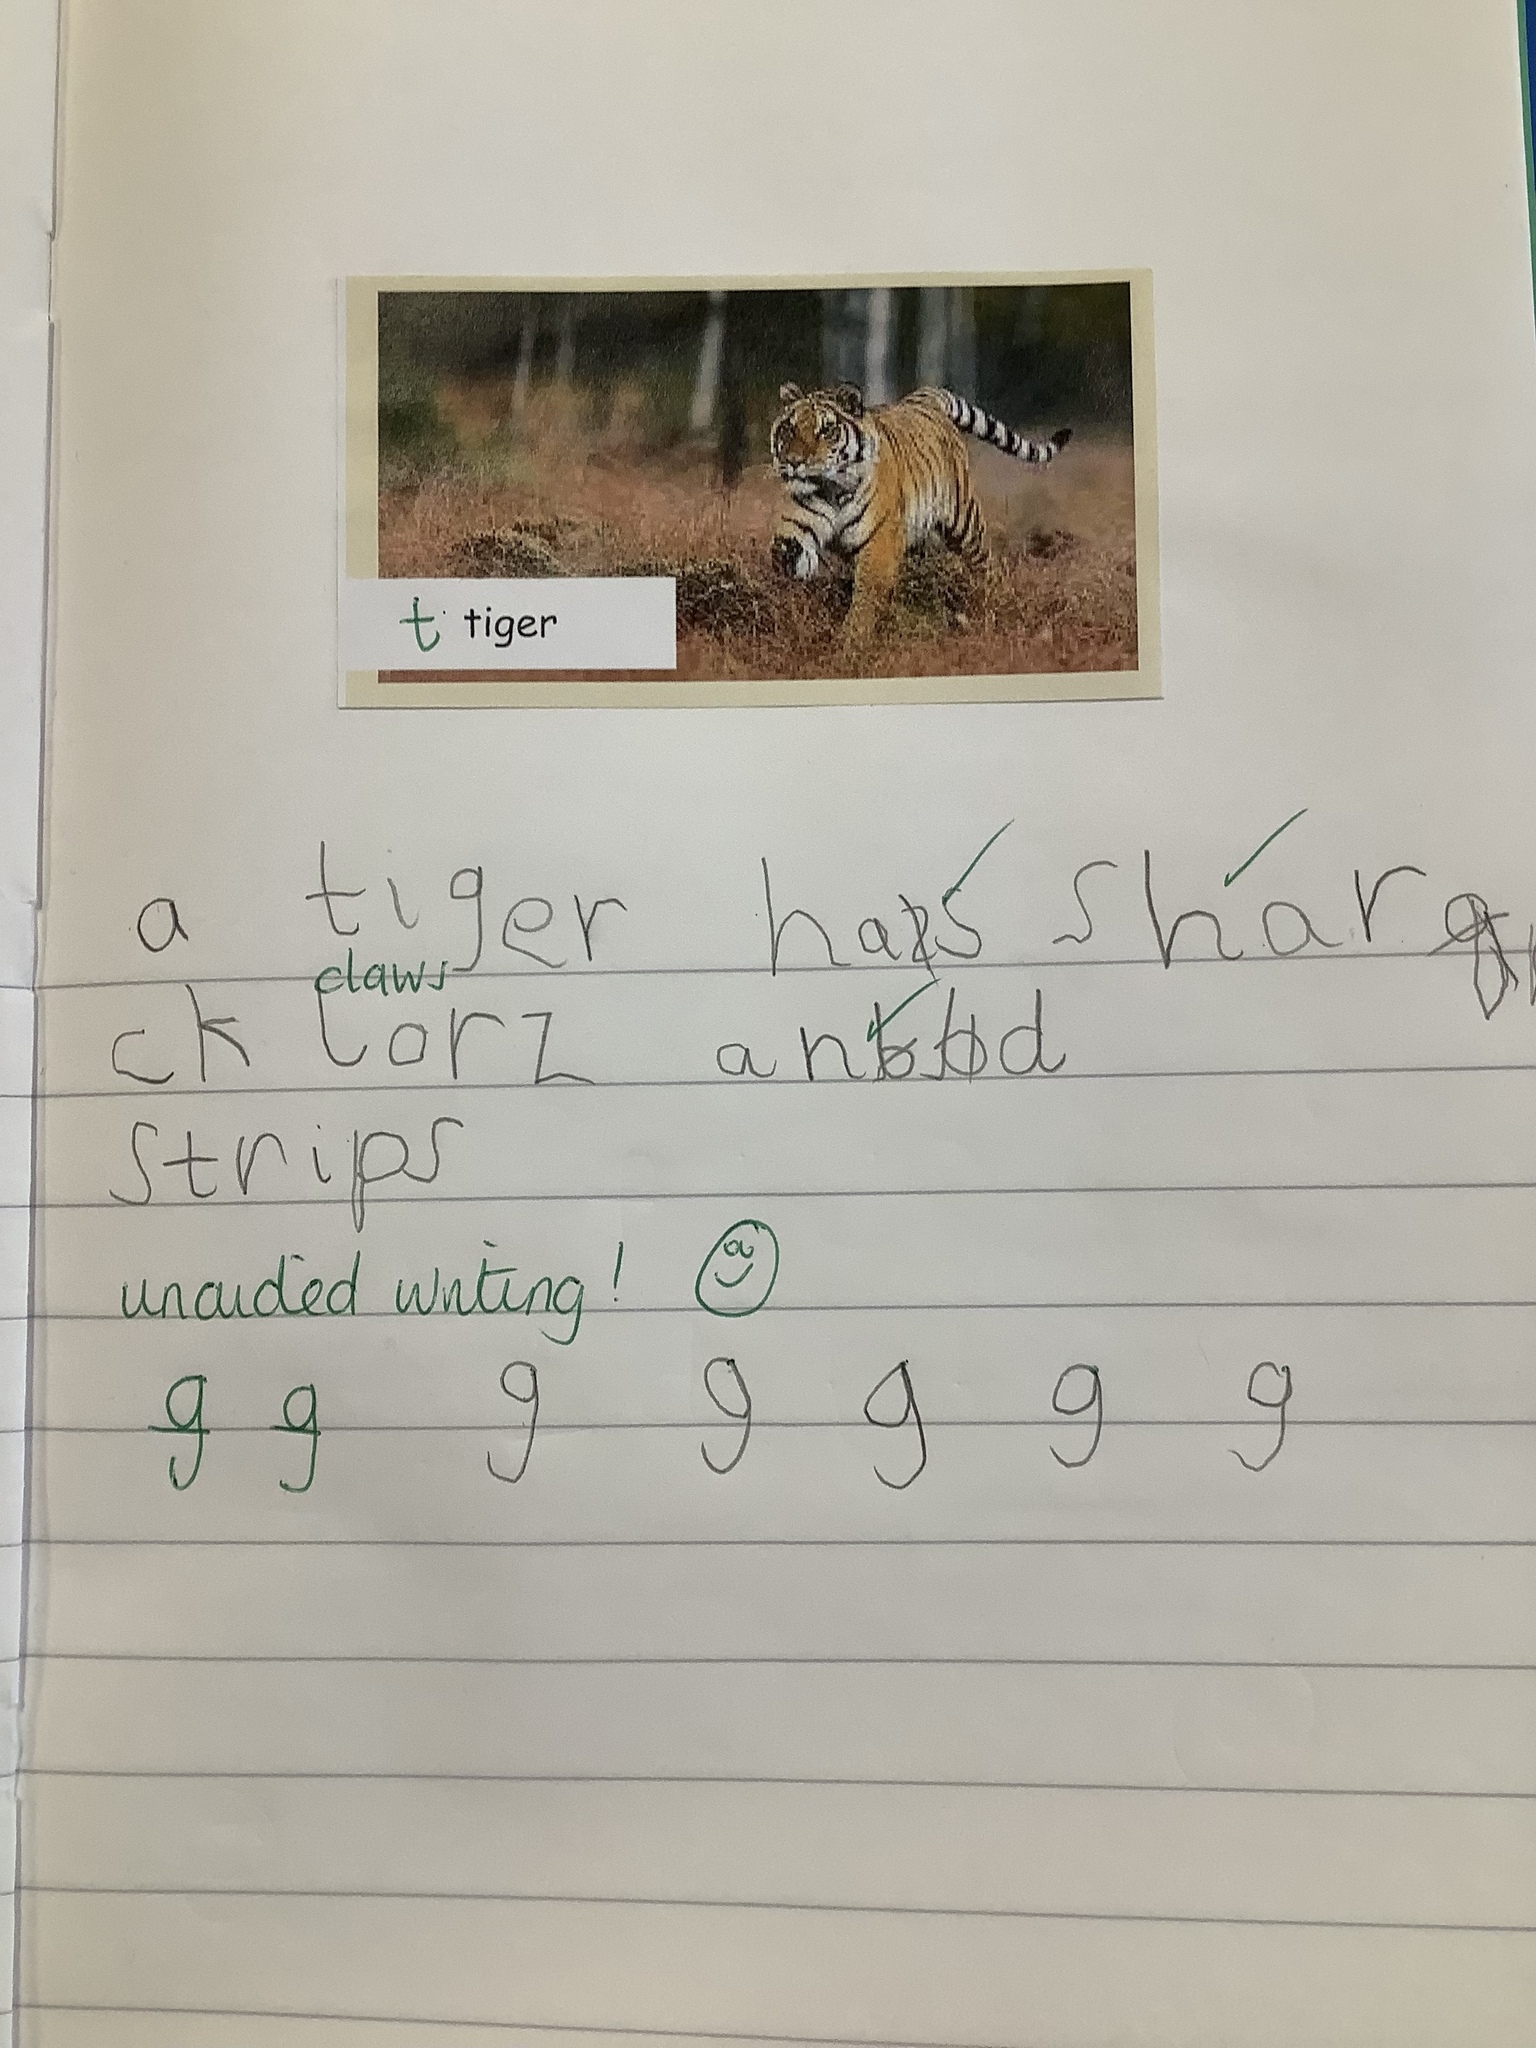 t tiger
a tiger has sharp
claws
ck lorz and
strips
unaided writing!
g g g g g g g